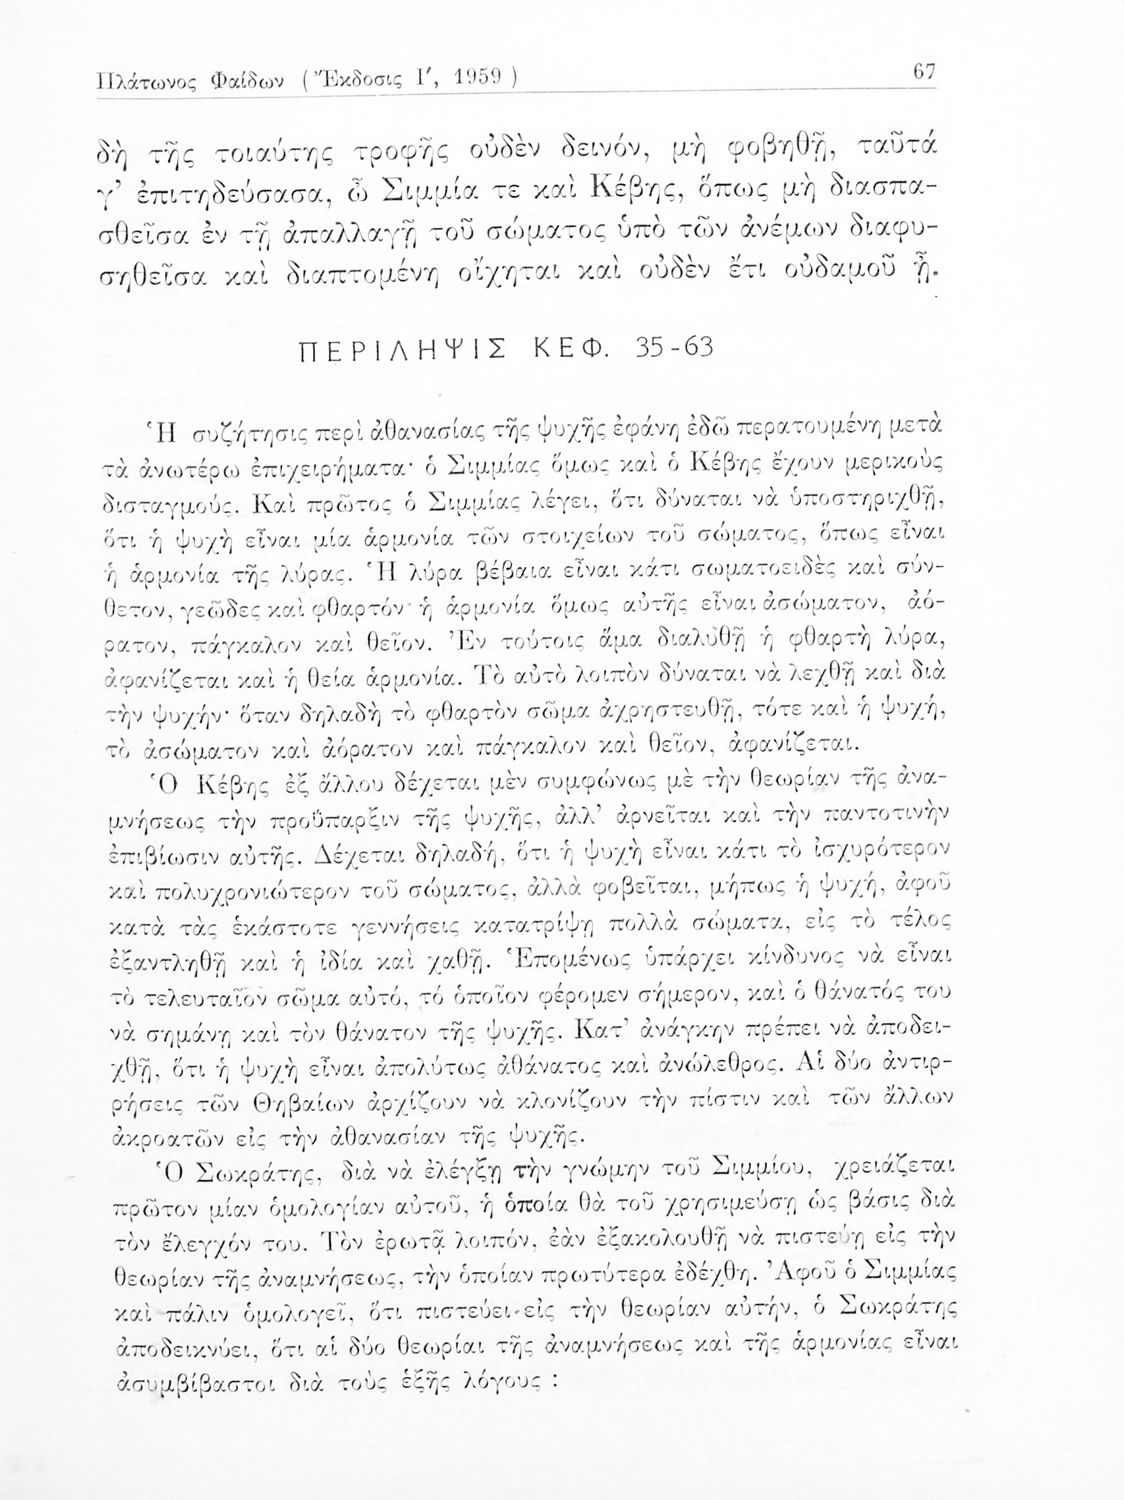 Πλάτωνος Φαίδων ( Ἔκδοσις Ι′, 1959 ) 67
δὴ τῆς τοιαύτης τροφῆς οὐδὲν δεινόν, μὴ φοβηθῇ, ταῦτά
γ’ ἐπιτηδεύσασα, ὦ Σιμμία τε καὶ Κέβης, ὅπως μὴ διασπα-
σθεῖσα ἐν τῇ ἀπαλλαγῇ τοῦ σώματος ὑπὸ τῶν ἀνέμων διαφυ-
σηθεῖσα καὶ διαπτομένη οἴχηται καὶ οὐδὲν ἔτι οὐδαμοῦ ᾖ.
ΠΕΡΙΛΗΨΙΣ ΚΕΦ. 35-63
Ἡ συζήτησις περὶ ἀθανασίας τῆς ψυχῆς ἐφάνη ἐδῶ περατουμένη μετὰ
τὰ ἀνωτέρω ἐπιχειρήματα· ὁ Σιμμίας ὅμως καὶ ὁ Κέβης ἔχουν μερικοὺς
δισταγμούς. Καὶ πρῶτος ὁ Σιμμίας λέγει, ὅτι δύναται νὰ ὑποστηριχθῇ,
ὅτι ἡ ψυχὴ εἶναι μία ἁρμονία τῶν στοιχείων τοῦ σώματος, ὅπως εἶναι
ἡ ἁρμονία τῆς λύρας. Ἡ λύρα βέβαια εἶναι κάτι σωματοειδὲς καὶ σύν-
θετον, γεῶδες καὶ φθαρτόν· ἡ ἁρμονία ὅμως αὐτῆς εἶναι ἀσώματον, ἀό-
ρατον, πάγκαλον καὶ θεῖον. Ἐν τούτοις ἅμα διαλυθῇ ἡ φθαρτὴ λύρα,
ἀφανίζεται καὶ ἡ θεία ἁρμονία. Τὸ αὐτὸ λοιπὸν δύναται νὰ λεχθῇ καὶ διὰ
τὴν ψυχήν· ὅταν δηλαδὴ τὸ φθαρτὸν σῶμα ἀχρηστευθῇ, τότε καὶ ἡ ψυχή,
τὸ ἀσώματον καὶ ἀόρατον καὶ πάγκαλον καὶ θεῖον, ἀφανίζεται.
Ὁ Κέβης ἐξ ἄλλου δέχεται μὲν συμφώνως μὲ τὴν θεωρίαν τῆς ἀνα-
μνήσεως τὴν προΰπαρξιν τῆς ψυχῆς, ἀλλ’ ἀρνεῖται καὶ τὴν παντοτινὴν
ἐπιβίωσιν αὐτῆς. Δέχεται δηλαδή, ὅτι ἡ ψυχὴ εἶναι κάτι τὸ ἰσχυρότερον
καὶ πολυχρονιώτερον τοῦ σώματος, ἀλλὰ φοβεῖται, μήπως ἡ ψυχή, ἀφοῦ
κατὰ τὰς ἑκάστοτε γεννήσεις κατατρίψῃ πολλὰ σώματα, εἰς τὸ τέλος
ἐξαντληθῇ καὶ ἡ ἰδία καὶ χαθῇ. Ἑπομένως ὑπάρχει κίνδυνος νὰ εἶναι
τὸ τελευταῖον σῶμα αὐτό, τό ὁποῖον φέρομεν σήμερον, καὶ ὁ θάνατός του
νὰ σημάνῃ καὶ τὸν θάνατον τῆς ψυχῆς. Κατ’ ἀνάγκην πρέπει νὰ ἀποδει-
χθῇ, ὅτι ἡ ψυχὴ εἶναι ἀπολύτως ἀθάνατος καὶ ἀνώλεθρος. Αἱ δύο ἀντιρ-
ρήσεις τῶν Θηβαίων ἀρχίζουν νὰ κλονίζουν τὴν πίστιν καὶ τῶν ἄλλων
ἀκροατῶν εἰς τὴν ἀθανασίαν τῆς ψυχῆς.
Ὁ Σωκράτης, διὰ νὰ ἐλέγξῃ τὴν γνώμην τοῦ Σιμμίου, χρειάζεται
πρῶτον μίαν ὁμολογίαν αὐτοῦ, ἡ ὁποία θὰ τοῦ χρησιμεύσῃ ὡς βάσις διὰ
τὸν ἔλεγχόν του. Τὸν ἐρωτᾷ λοιπόν, ἐὰν ἐξακολουθῇ νὰ πιστεύῃ εἰς τὴν
θεωρίαν τῆς ἀναμνήσεως, τὴν ὁποίαν πρωτύτερα ἐδέχθη. Ἀφοῦ ὁ Σιμμίας
καὶ πάλιν ὁμολογεῖ, ὅτι πιστεύει εἰς τὴν θεωρίαν αὐτήν, ὁ Σωκράτης
ἀποδεικνύει, ὅτι αἱ δύο θεωρίαι τῆς ἀναμνήσεως καὶ τῆς ἁρμονίας εἶναι
ἀσυμβίβαστοι διὰ τοὺς ἑξῆς λόγους :